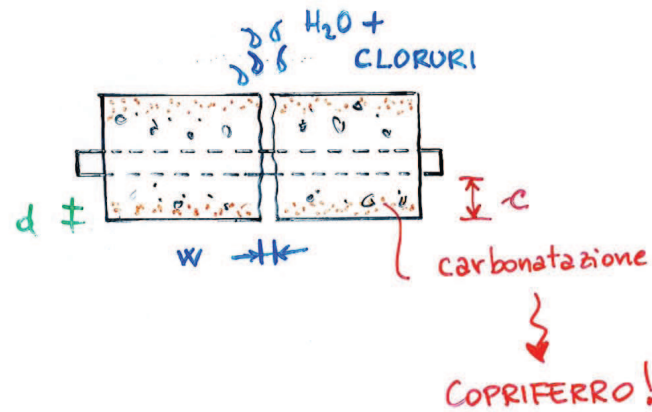 H₂O +
CLORURI
d
c
w
carbonatazione
COPRIFERRO!